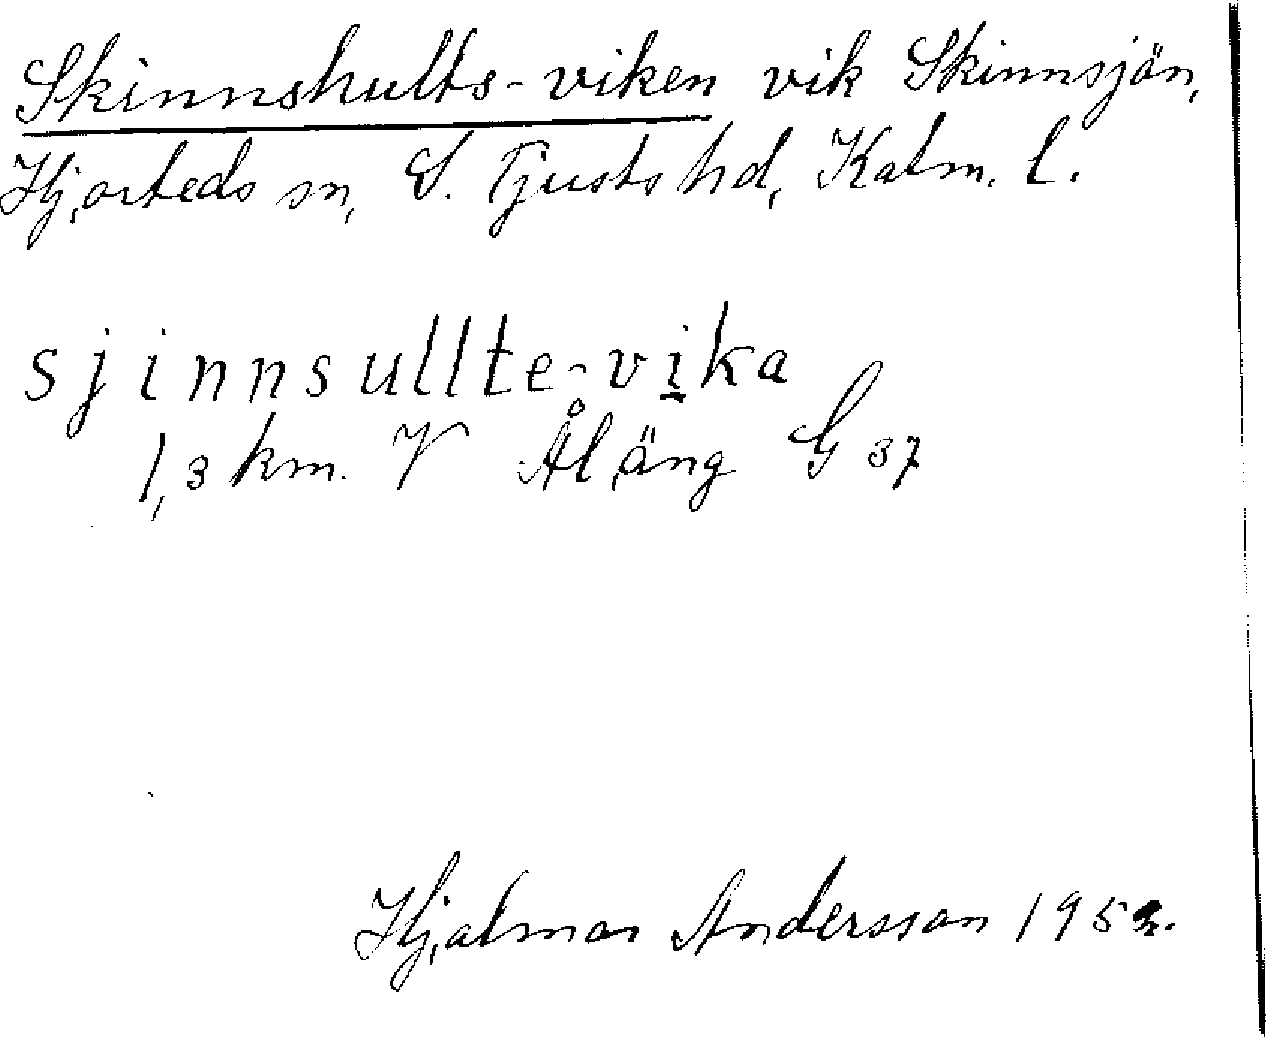 Skinnshults-viken vik Skinnsjön,
Hjorteds sn, S. Tjusts hd, Kalm. l.
sjinnsullte-vika
1,3 km. V Åläng G 37
Hjalmar Andersson 1952.